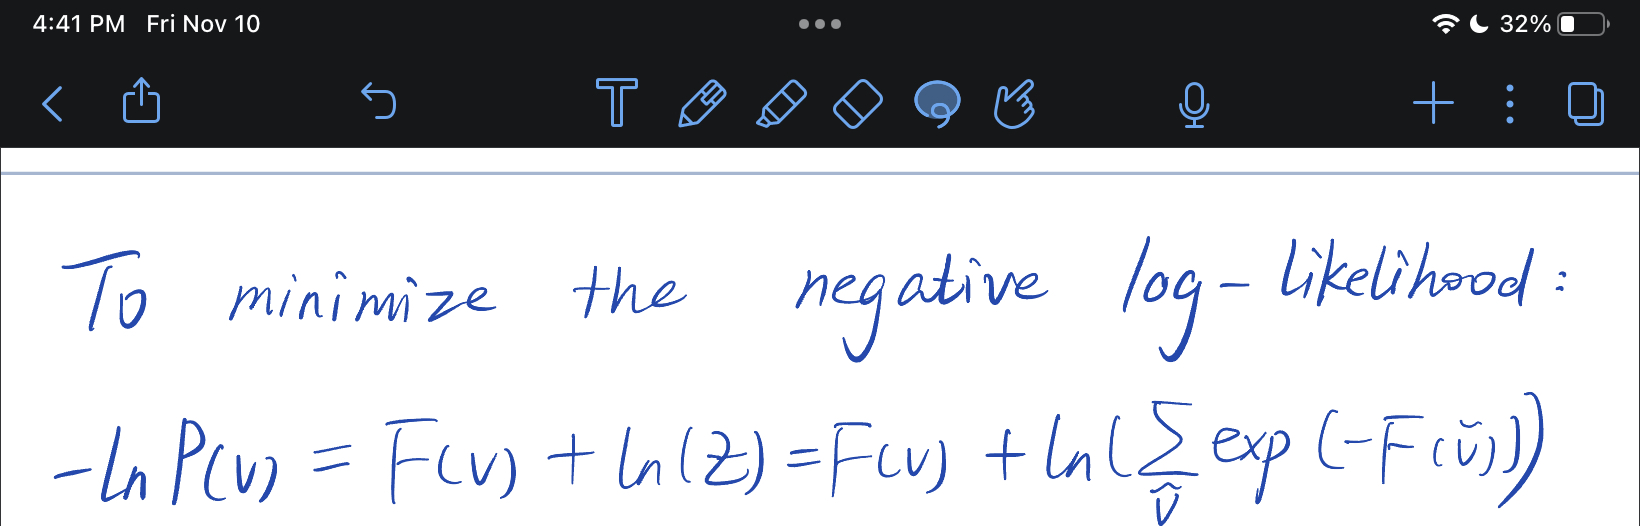 4:41 PM Fri Nov 10 32%
T
To minimize the negative log-likelihood:
-ln P(v) = F(v) + ln(Z) = F(v) + ln(∑_ṽ exp(-F(ṽ)))